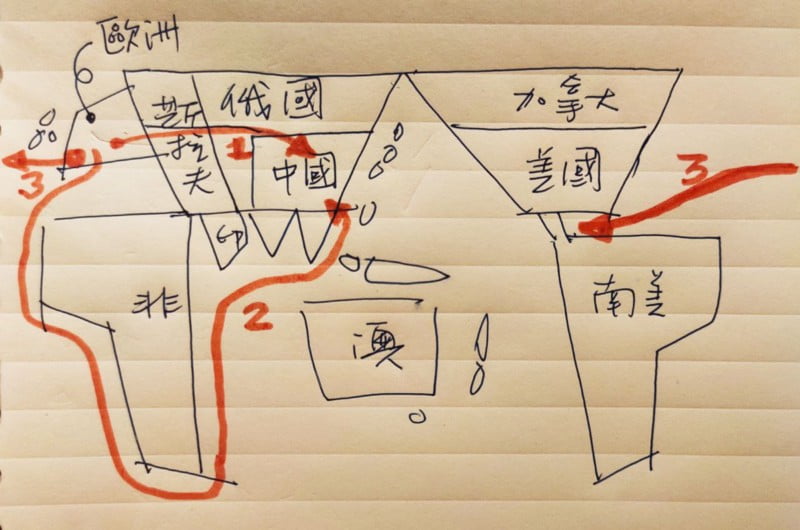 歐洲
俄國
加拿大
斯拉夫
1
中國
美國
3
3
印
非
2
澳
南美